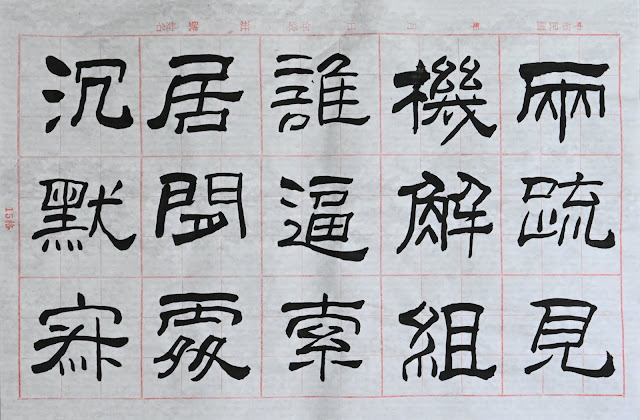 兩疏見
機解組
誰逼索
居閒處
沉默寂